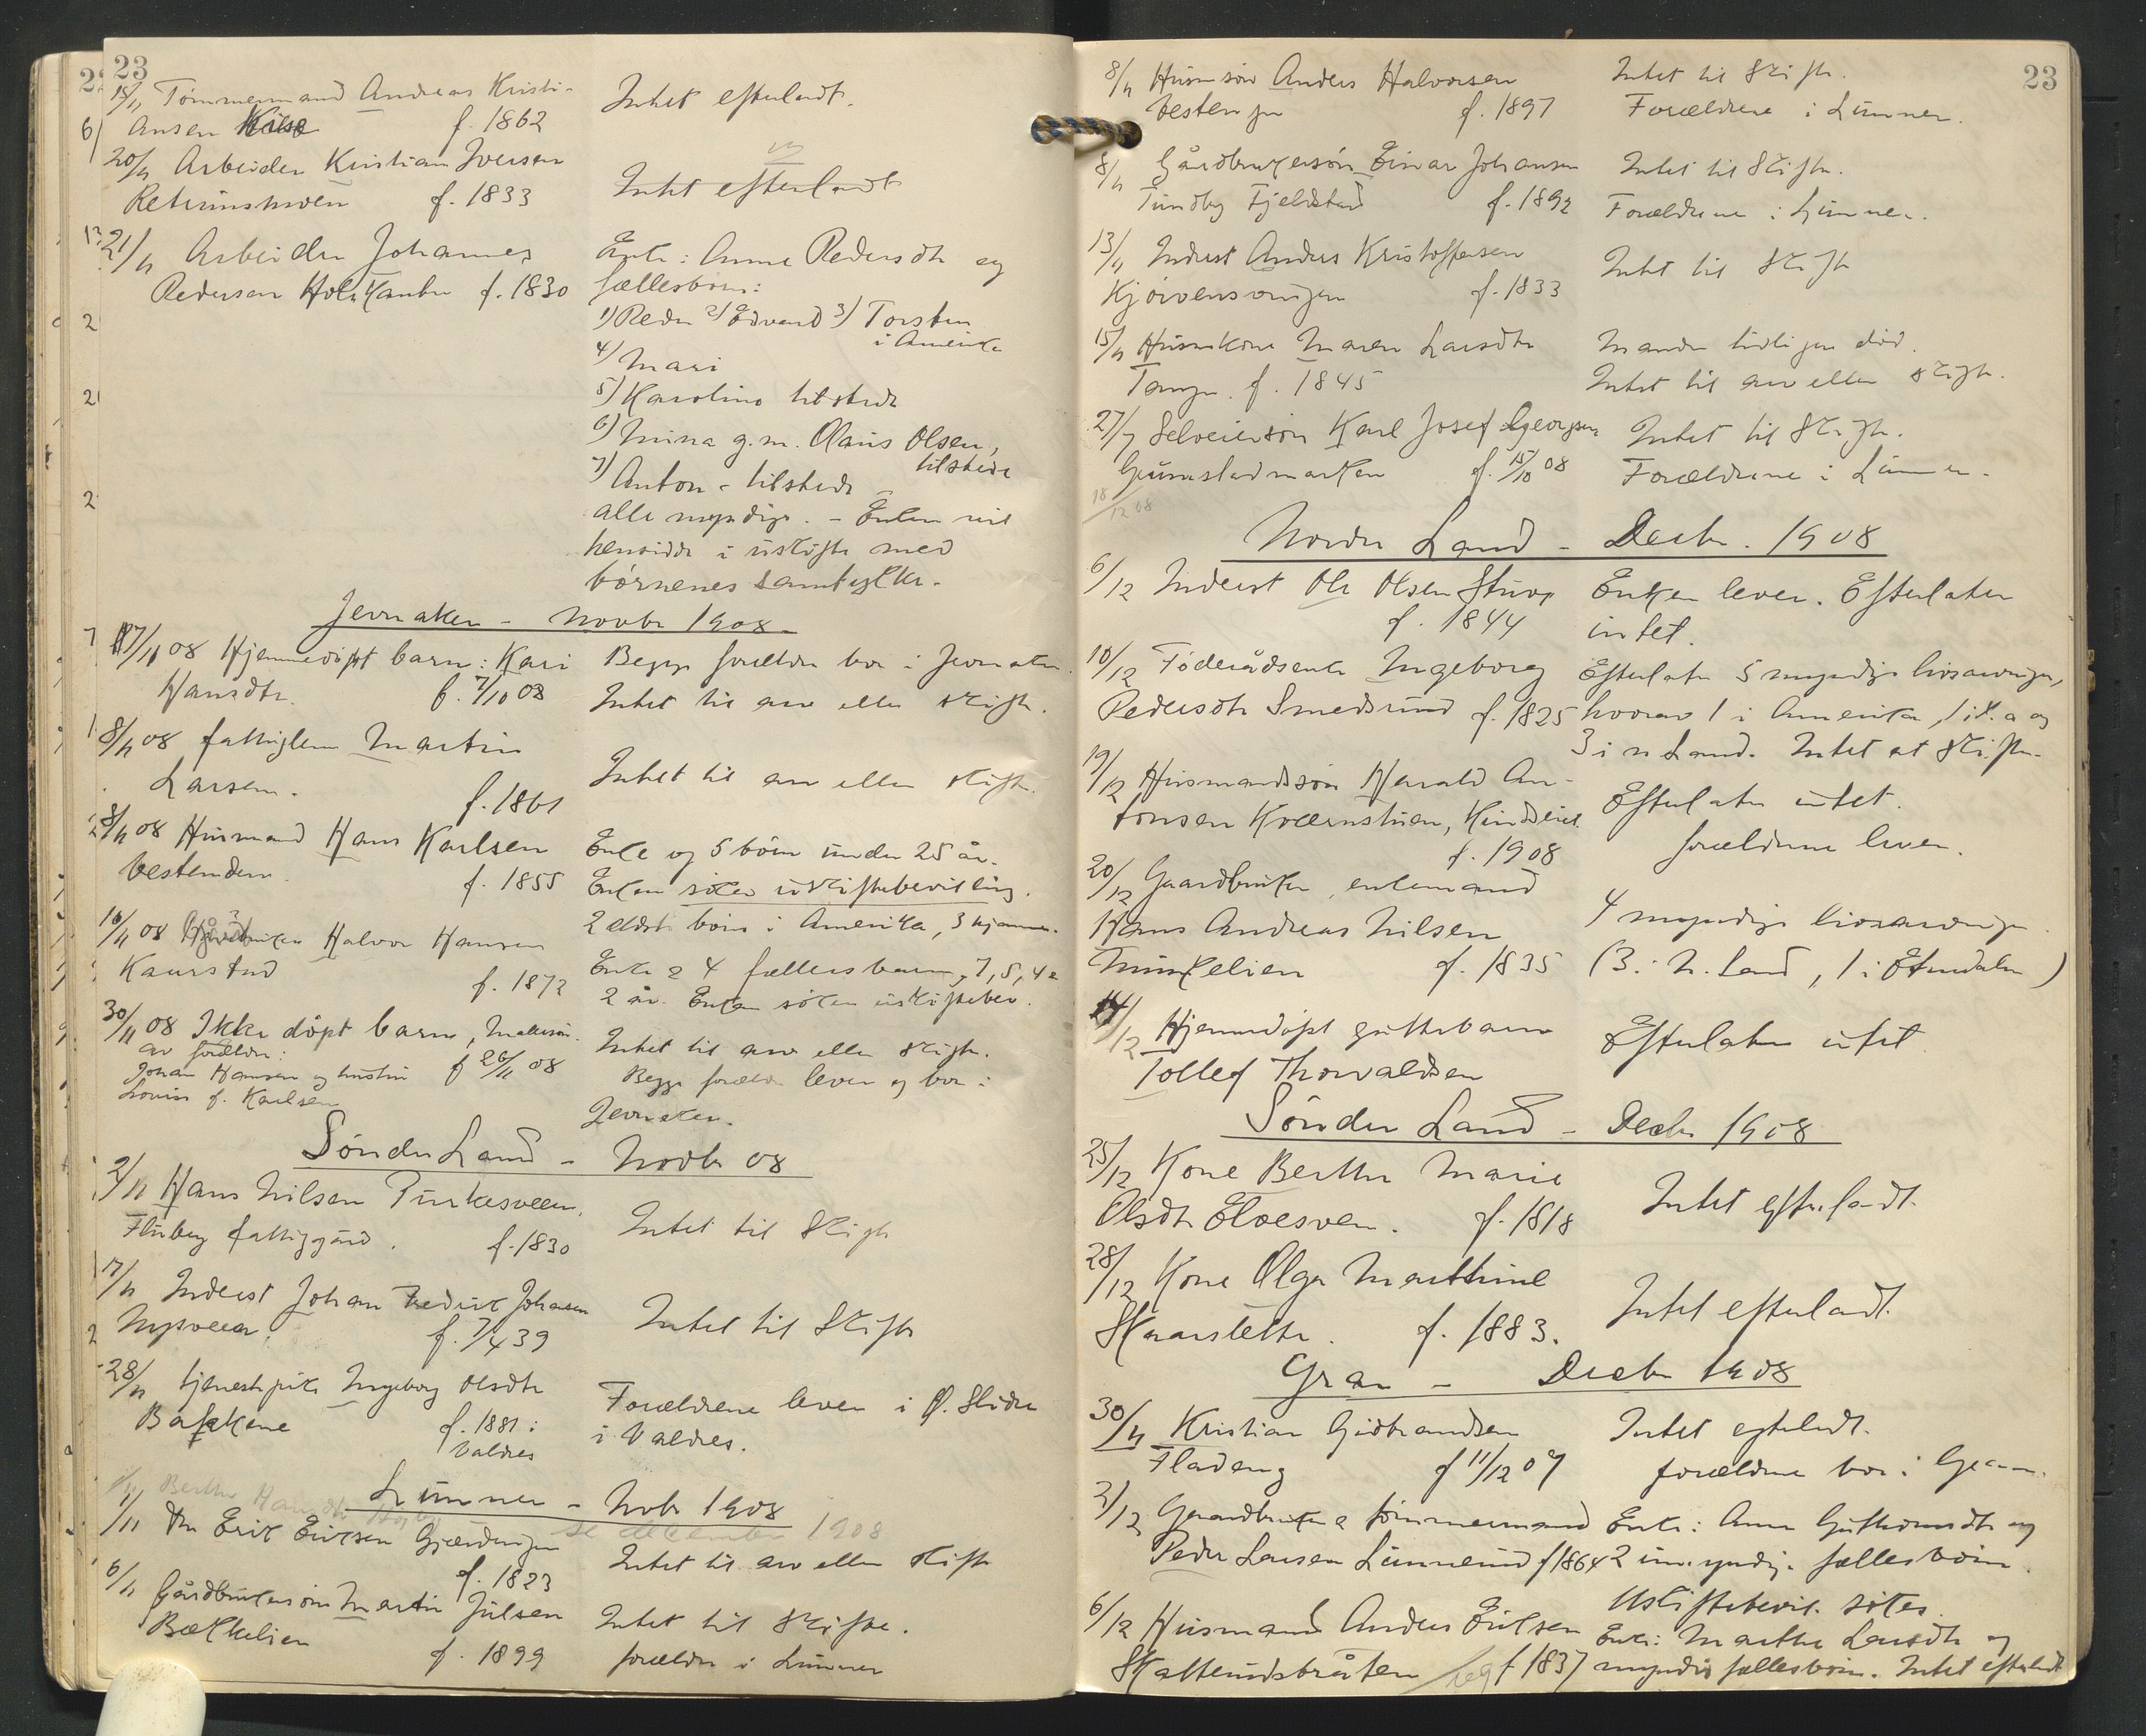 23
15/11 Tømmermand Andreas Kristi-
ansen f. 1862
Intet efterladt.
20/11 Arbeider Kristian Iversen
f. 1833
Intet efterladt
21/11 Arbeider Johannes
Pedersen f. 1830
Enke: Anne Pedersdtr og
fællesbørn:
1) Peder 2) Edvard 3) Torsten
i Amerika
4) Mari
5) Karoline tilstede
6) Mina g.m. Olaus Olsen,
tilstede
7) Anton - tilstede
alle myndige. - Enken vil
hensidde i uskifte med
børnenes samtykke.
Jevnaker - Novbr 1908
17/11 08 Hjemmedøpt barn: Kari
Hansdtr. f. 7/10 08
Begge forældre bor i Jevnaker.
Intet til arv eller skifte.
8/11 08 fattiglem Martin
Larsen. f. 1861
Intet til arv eller skifte.
8/11 08 Husmand Hans Karlsen
Vestenderen. f. 1855
Enke og 5 børn under 25 år.
Enken søker uskiftebevilling.
2 eldste børn i Amerika, 3 hjemme.
16/11 08 Halvor Hansen
Kaurstad f. 1872
Enke & 4 fællesbarn, 7, 5, 4 &
2 år. Enken søker uskiftebev.
30/11 08 Ikke døpt barn,
av forældre: f 26/11 08
Johan Hansen og hustru
Lovise f. Karlsen
Intet til arv eller skifte.
Begge forældre lever og bor i
Jevnaker.
Sønder Land - Novbr 08
2/11 Hans Nilsen
Fluberg fattiggård. f. 1830
Intet til skifte
17/11 Inderst Johan Fredrik Johansen
f. 7/4 39
Intet til skifte
28/11 tjenestepike Ingeborg Olsdtr
f. 1881 i
Valdres
Forældrene lever i Ø. Slidre
i Valdres.
Lunner - Novbr 1908
se december 1908
1/11 Erik Eriksen
f. 1823
Intet til arv eller skifte
6/11 Gårdbrukersøn Martin Julsen
Bækkelien f. 1899
Intet til skifte.
forældre i Lunner
23
8/11 Anders Halvorsen
Vestenga f. 1897
Intet til skifte.
Forældrene i Lunner.
8/11 Gårdbrukersøn Einar Johansen
Tundby Fjeldstad f. 1892
Intet til skifte.
Forældrene i Lunner.
13/11 Inderst Anders Kristoffersen
f. 1833
Intet til skifte
15/11 Huskone Maren Larsdtr
Tangen. f. 1845
Manden tidligere død.
Intet til arv eller skifte.
27/11 Selveiersøn Karl Josef Georgsen
Grimstadmarken f. 15/10 08
Intet til skifte.
Forældrene i Lunner.
18/12 08
Nordre Land - Decbr. 1908
6/12 Inderst Ole Olsen
f. 1844
Enken lever. Efterlater
intet.
10/12 Føderådsenke Ingeborg
Pedersdtr Smedsrud f. 1825
Efterlater 5 myndige livsarvinger,
hvorav 1 i Amerika, og
3 i N Land. Intet at skifte.
19/12 Husmandssøn Harald An-
tonsen Kværnstuen,
f. 1908
Efterlater intet.
forældrene lever.
20/12 Gaardbruker, enkemand
Hans Andreas Nilsen
f. 1835
4 myndige livsarvinger.
(3 i N. Land, 1 i Etnedalen)
14/12 Hjemmedøpt guttebarn
Tollef Thorvaldsen
Efterlater intet
Sønder Land - Decbr 1908
25/12 Kone Berthe Marie
Olsdtr f. 1818
Intet efterladt.
28/12 Kone Olga Marthine
Skaarsletta. f. 1883.
Intet efterladt.
Gran - Decbr 1908
30/11 Kristian Gudbrandsen
Fladeng f 11/12 07
Intet efterladt.
forældrene bor i Gran.
2/12 Gaardbruker & tømmermand
Peder Larsen Lunnerud f 1864
Enke: Anne Guttormsdtr og
2 umyndige fællesbørn.
Uskiftebevil. søkes.
6/12 Husmand Anders Eriksen
f 1837
Enke: Marthe Larsdtr og
myndige fællesbørn. Intet efterladt